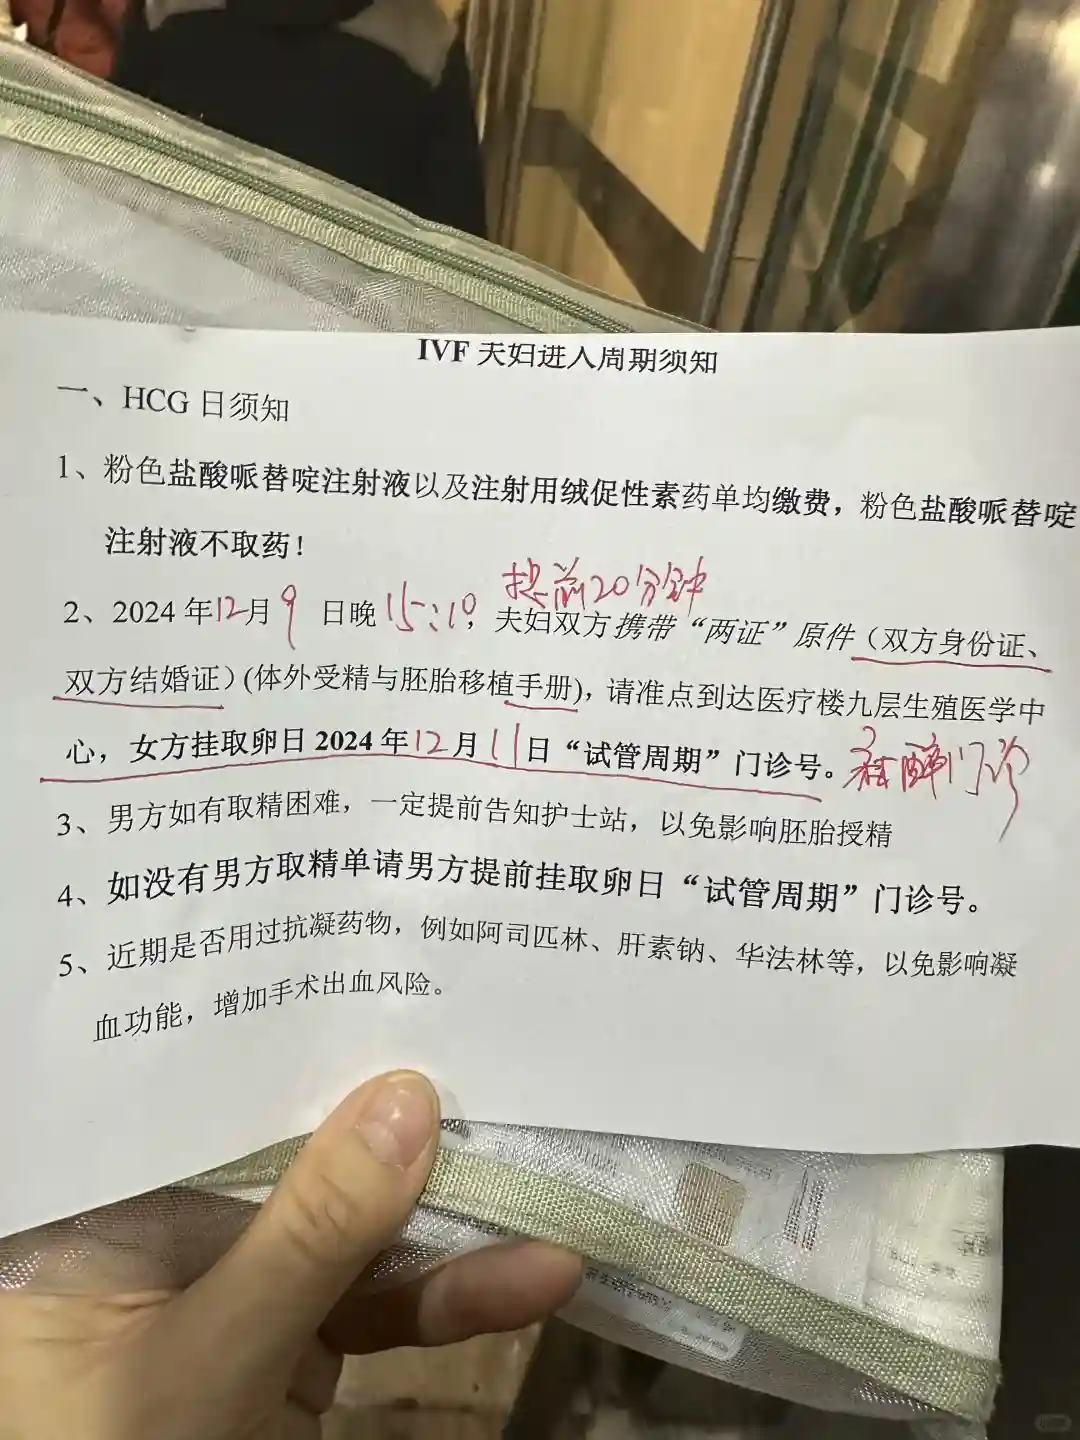 IVF 夫妇进入周期须知
一、HCG 日须知
1、粉色盐酸哌替啶注射液以及注射用绒促性素药单均缴费，粉色盐酸哌替啶
注射液不取药！
提前20分钟
2、2024 年12月9 日晚15:10，夫妇双方携带“两证”原件（双方身份证、
双方结婚证）(体外受精与胚胎移植手册)，请准点到达医疗楼九层生殖医学中
心，女方挂取卵日 2024 年12月11日“试管周期”门诊号。
门诊
3、男方如有取精困难，一定提前告知护士站，以免影响胚胎授精
4、如没有男方取精单请男方提前挂取卵日“试管周期”门诊号。
5、近期是否用过抗凝药物，例如阿司匹林、肝素钠、华法林等，以免影响凝
血功能，增加手术出血风险。